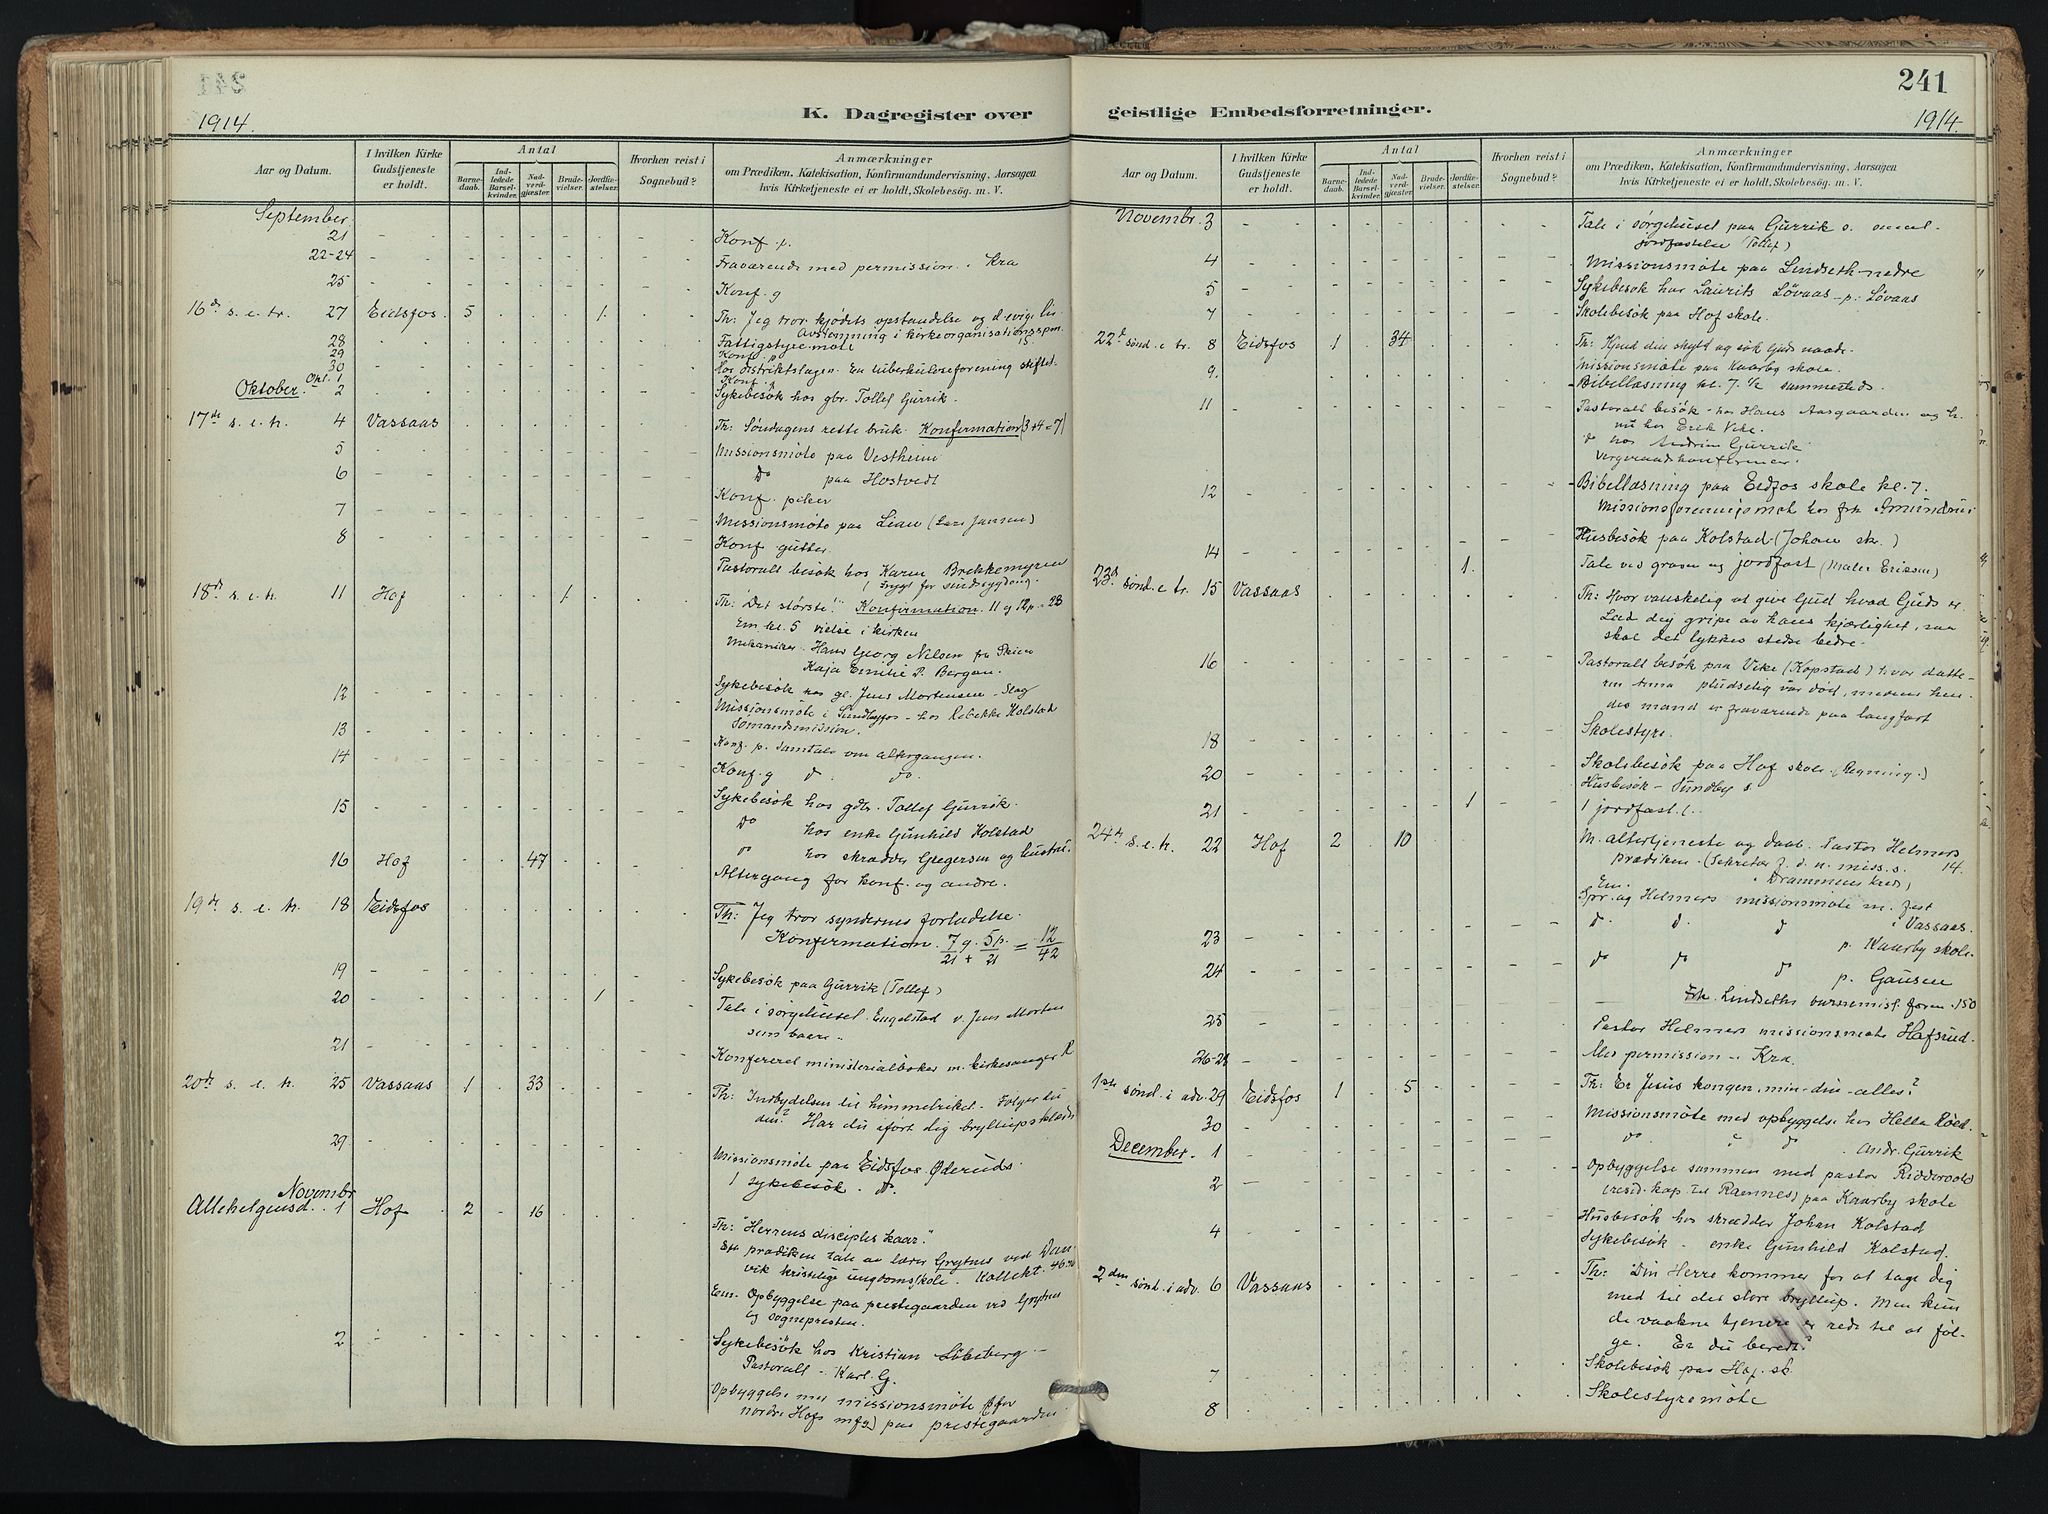 241
K. Dagregister over
geistlige Embedsforretninger.
1914.
Aar og Datum.
I hvilken Kirke
Gudstjeneste
er holdt.
Antal
Barne-
daab.
Ind-
ledede
Barsel-
kvinder.
Nad-
verd-
gjester.
Brude-
vielser.
Jordfæ-
stelser.
Hvorhen reist i
Sognebud?
Anmærkninger
om Prædiken, Katekisation, Konfirmandundervisning, Aarsagen
hvis Kirketjeneste ei er holdt, Skolebesøg. m. V.
September.
21 Konf. p.
22-24 Fraværende med permission. Kra
25 Konf. g
16de s. e. tr. 27 Eidsfos. 5 1. Th: Jeg tror kjødets opstandelse og d. evige liv
Avstemning i kirkeorganisationsspm.
28 Fattigstyremøte
29 Konf. p
30 Tuberkuloseforening stiftet.
Okt. 1 Konf. g.
Oktober. 2 Sykebesøk hos gbr. Tollef Gurrik.
17de s. e. tr. 4 Vassaas Th: Søndagens rette bruk. Konfirmation (3+4=7)
5 Missionsmøte paa Vestheim
6 do paa Hostvedt
7 Konf. piker
Missionsmøte paa Lian (Lars Jansen)
8 Konf. gutter
Pastoralt besøk hos Karen Brekkemyren
( frygt for sindssygdom.
18de s. e. tr. 11 Hof 1 Th: "Det største!" Konfirmation. 11 g
Em. kl. 5 vielse i kirken
Mekaniker Hans Georg Nilsen fra Skien
Kaja Emilie Bergan.
12 Sykebesøk hos gl. Jens Mortensen - Stag
Missionsmøte i Sundbyfos - hos Rebekka Kolstad
13 Sømandsmission.
14 Konf. p. samtale om altergangen.
Konf. g do. do.
15 Sykebesøk hos gdr. Tollef Gurrik.
do hos enke Gunhild Kolstad
do hos skrædder Gregersen og hustru.
16 Hof 47 Altergang for konf. og andre.
19de s. e. tr. 18 Eidsfos Th: Jeg tror syndernes forladelse.
Konfirmation. 7/21 g. + 5/21 p. = 12/42
19 Sykebesøk paa Gurrik (Tollef)
20 1 Tale i sørgehuset Engelstad v. Jens Morten
sens baare.
21 Konfereret ministerialbøker m. kirkesanger R
20de s. e. tr. 25 Vassaas 1 33 Th: Indbydelsen til himmelriket. Følger du
den? Har du iført dig bryllupsklæde
29 Missionsmøte paa Eidsfos. Øderuds.
1 sykebesøk. do.
Novembr
Allehelgensd. 1 Hof 2 16 Th: "Herrens disciples kaar."
prædiken tale av lærer Grytnes ved Dan-
vik kristelige ungdomsskole. Kollekt.
Em. Opbyggelse paa prestegaarden ved Grytnes
og sognepresten.
2 Sykebesøk hos Kristian
Pastoralt - Karl G.
Opbyggelse med missionsmøte (for
nordre Hofs mfg) paa prestegaarden
241
1914.
Aar og Datum.
I hvilken Kirke
Gudstjeneste
er holdt.
Antal
Barne-
daab.
Ind-
ledede
Barsel-
kvinder.
Nad-
verd-
gjester.
Brude-
vielser.
Jordfæ-
stelser.
Hvorhen reist i
Sognebud?
Anmærkninger
om Prædiken, Katekisation, Konfirmandundervisning, Aarsagen
hvis Kirketjeneste ei er holdt, Skolebesøg. m. V.
Novembr. 3 Tale i sørgehuset paa Gurrik
jordfæstelse Tollef)
4 Missionsmøte paa Lindseth-nedre
5 Sykebesøk hos Laurits Løvaas - p. Løvaas
7 Skolebesøk paa Hof skole.
22de sønd. e tr. 8 Eidsfos 1 34 Th: Kjend din skyld og søk Guds naade.
9. Missionsmøte paa Kaarby skole.
Bibellæsning kl. 7 1/2 sammesteds.
11 Pastoralt besøk hos Hans Aasgaarden og h.
hos Erik Vike.
do hos Gurrik
12 Bibellæsning paa Eidfos skole kl. 7.
hos frk Amundrud
14 Husbesøk paa Kolstad (Johan sk.)
1. Tale ved graven og jordfæst (Maler Eriksen)
23de sønd. e tr. 15 Vassaas Th: Hvor vanskelig at give Gud hvad Guds er
Lad dig gripe av hans kjærlighet, saa
skal det lykkes stedse bedre.
16 Pastoralt besøk paa Vike (Kopstad) hvor datte-
ren Anna pludselig var død, mens hen-
des mand er fraværende paa langfart
18 Skolestyre.
20 Skolebesøk paa Hof skole. (Regning.)
Husbesøk - Sundby s.
21 1 1 jordfæst.
24de s. e. tr. 22 Hof 2 10 M. altertjeneste og daab. Pastor Helmers
prædiken. (Sekretær f. d. n. miss. s. 14.
Drammens kreds)
Em.
Spr. og Helmers missionsmøte m. fest
i Vassaas.
23 do do do p. Kaarby skole.
24 do do do p. Gausen
Frk. Lindseths barnemisf. foren. 150
25 Pastor Helmers missionsmøte Hafsrud.
26-28 Med permission - Kra.
1ste sønd. i adv. 29 Eidsfos 1 5 Th: Er Jesus kongen, min - din - alles?
30 Missionsmøte med opbyggelse hos Hella Røed.
December. 1 do do Andr. Gurrik
2 Opbyggelse sammen med pastor Ridderoold
(resid. kap til Ramnes) paa Kaarby skole
4 Husbesøk hos skrædder Johan Kolstad
Sykebesøk - enke Gunhild Kolstad.
2den sønd. i adv. 6 Vassaas Th: Din Herre kommer for at tage dig
med til det store bryllup. Men kun
de vaakne tjenere er rede til at føl-
ge. Er du beredt?
7 Skolebesøk paa Hof. sk.
8 Skolestyremøte